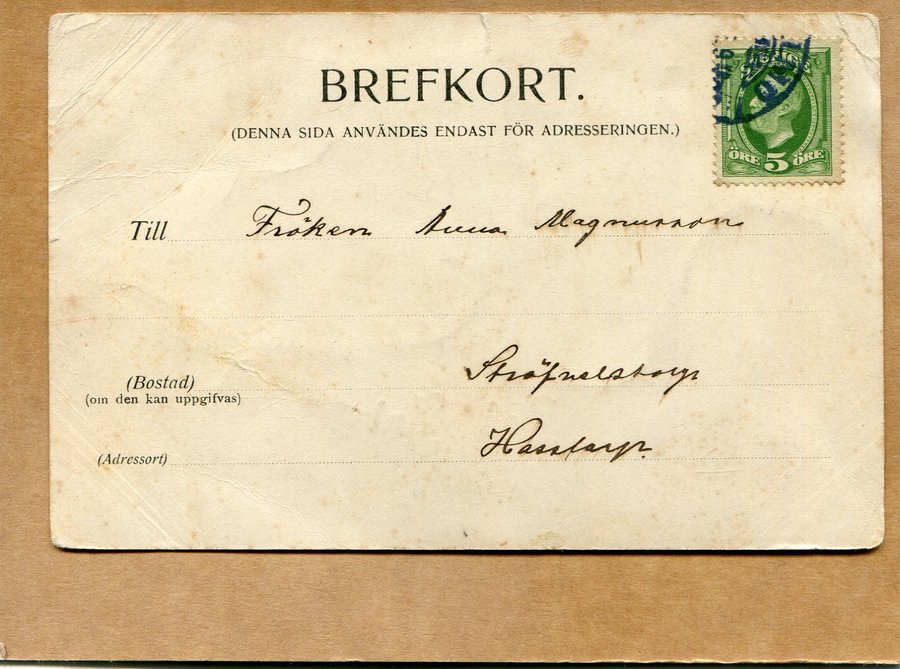 BREFKORT.
(DENNA SIDA ANVÄNDES ENDAST FÖR ADRESSERINGEN.)
SVERIGE
ÖRE 5 ÖRE
Till Fröken Anna Magnusson
(Bostad) Ströfvelstorp
(om den kan uppgifvas)
(Adressort) Hasstarp